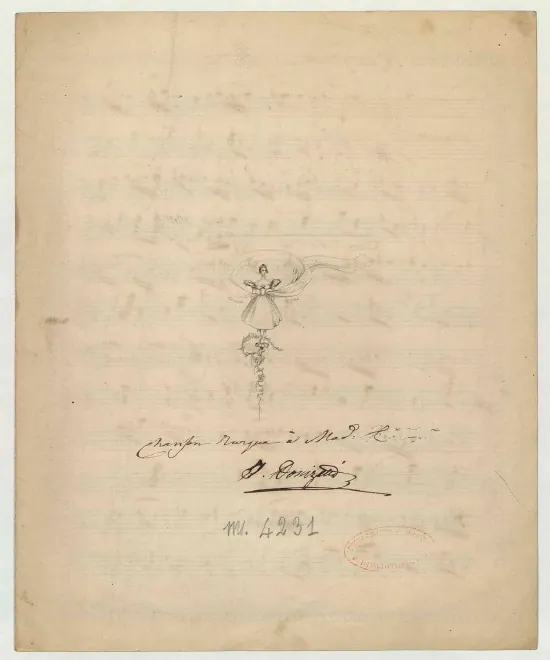 Chanson Turque à Mad.
J. Donizetti
M. 4231